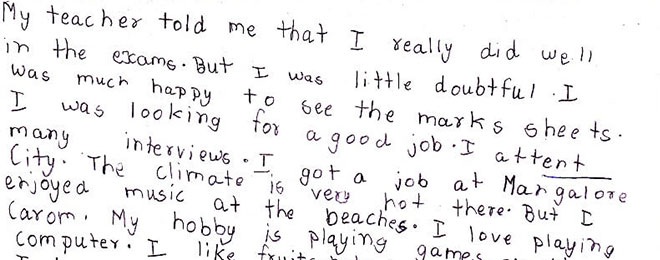 My teacher told me that I really did well
in the exams. But I was little doubtful. I
was much happy to see the marks sheets.
I was looking for a good job. I attent
many interviews. I got a job at Mangalore
City. The climate is very hot there. But I
enjoyed music at the beaches. I love playing
Carom. My hobby is playing games
computer. I like